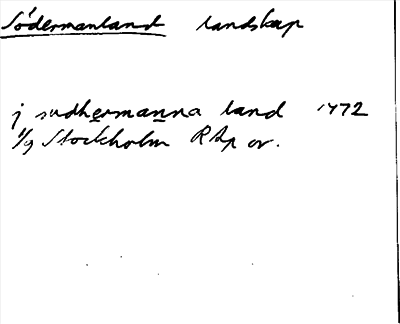 Södermanland landskap
j sudhermanna land 1472
1/9 Stockholm RAp or.